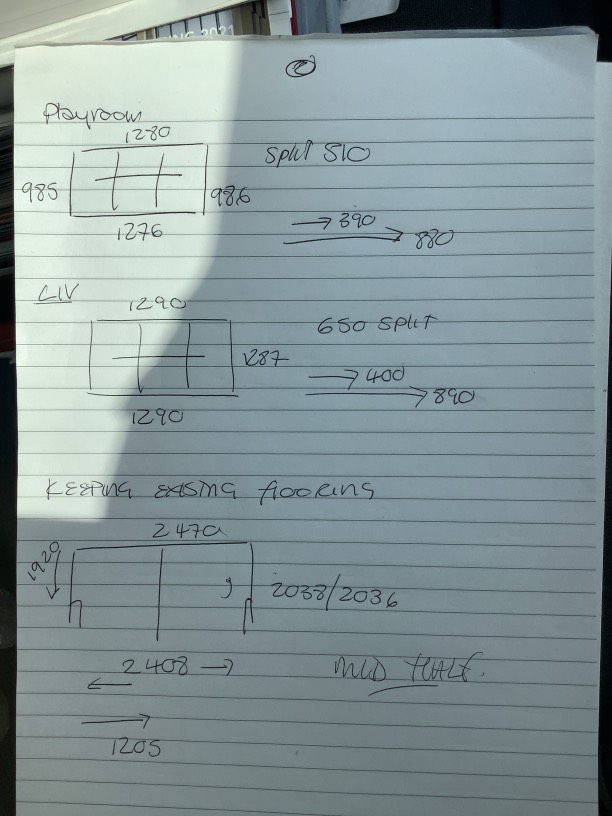 2
Playroom
1280
Split 510
985
986
390
880
1276
LIV
1290
650 Split
1287
400
890
1290
KEEPING EXISING flooring
2470
1920
2038/2036
2408
1205